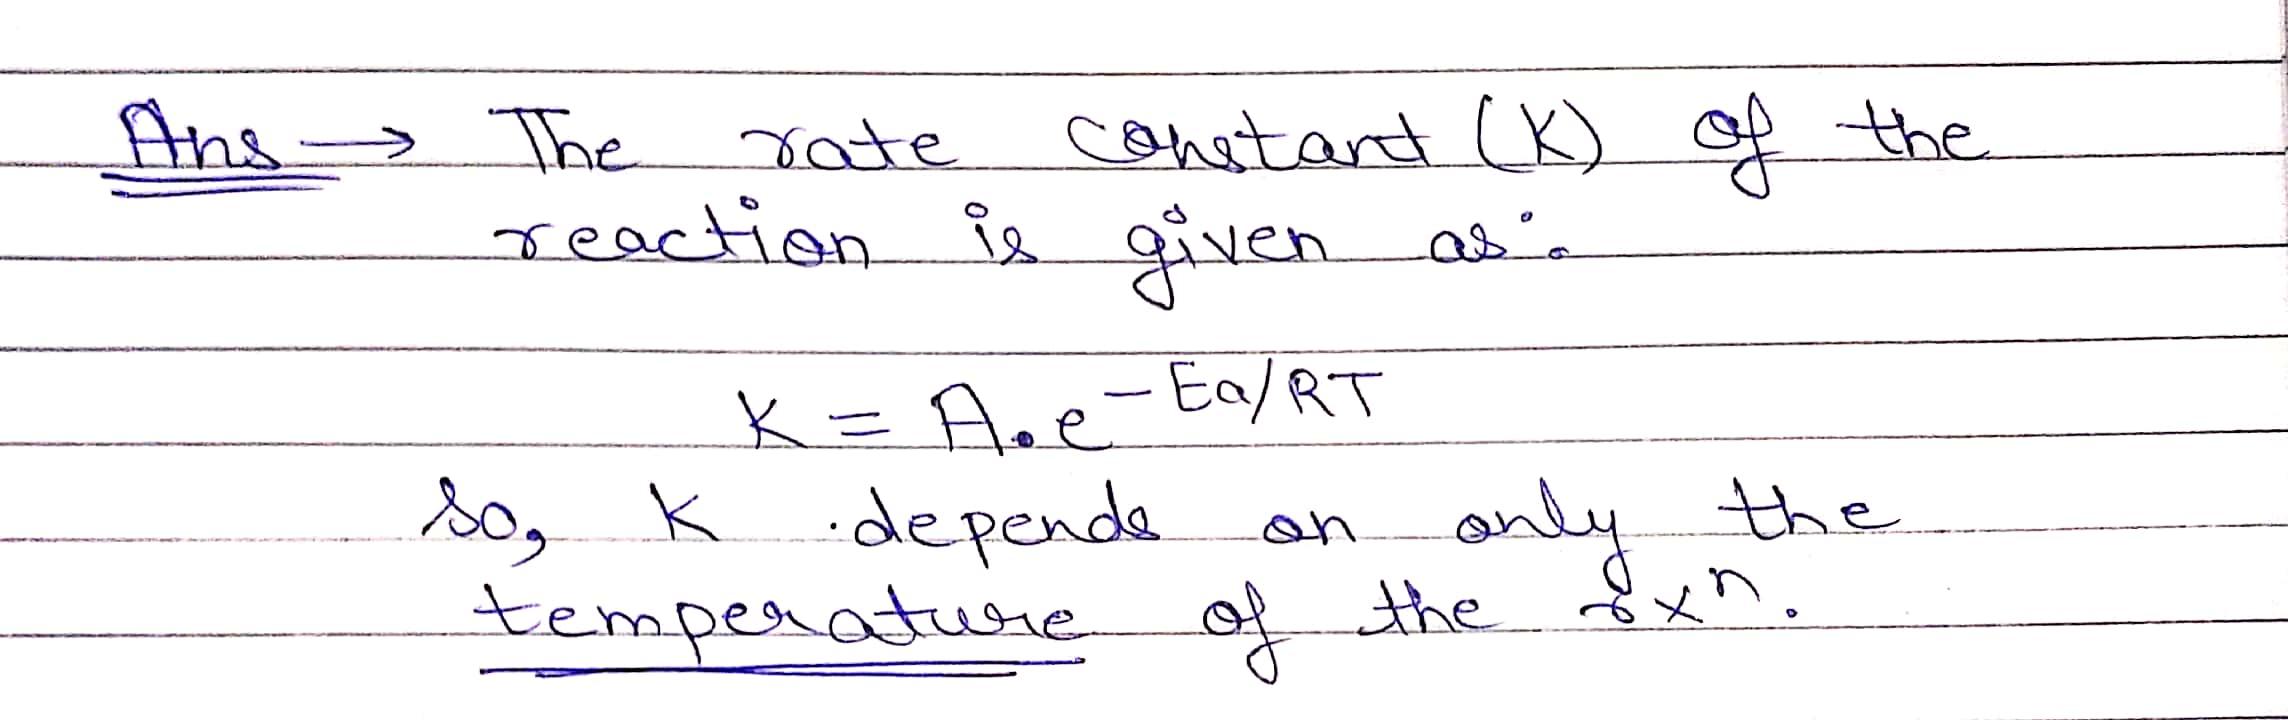 Ans → The rate constant (K) of the
reaction is given as:
K = A.e^-Ea/RT
So, K depends on only the
temperature of the rxn.